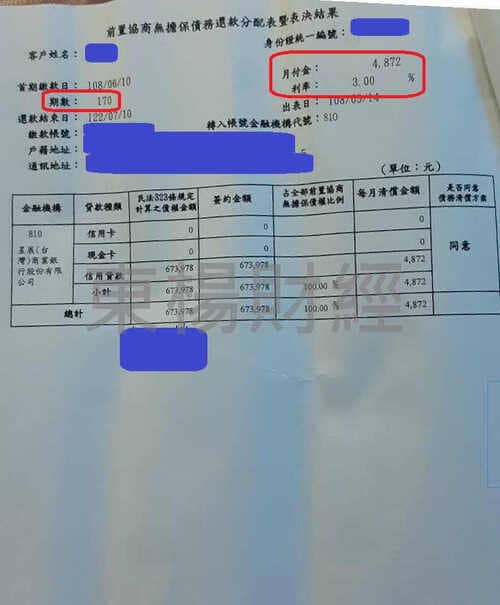 前置協商無擔保債務還款分配表暨表決結果
客戶姓名：
身份證統一編號：
首期繳款日：108/06/10
月付金：4,872
期數：170
利率：3.00 %
還款結束日：122/07/10
出表日：108/05/14
繳款帳號：
轉入帳號金融機構代號：810
戶籍地址：
通訊地址：
(單位：元)
金融機構 貸款種類 民法323條規定計算之債權金額 簽約金額 占全部前置協商無擔保債權比例 每月清償金額 是否同意債務清償方案
810 星展(台灣)商業銀行股份有限公司 信用卡 0 0 0 同意
現金卡 0 0 0
信用貸款 673,978 673,978 4,872
小計 673,978 673,978 100.00 % 4,872
總計 673,978 673,978 100.00 % 4,872
東楊財經